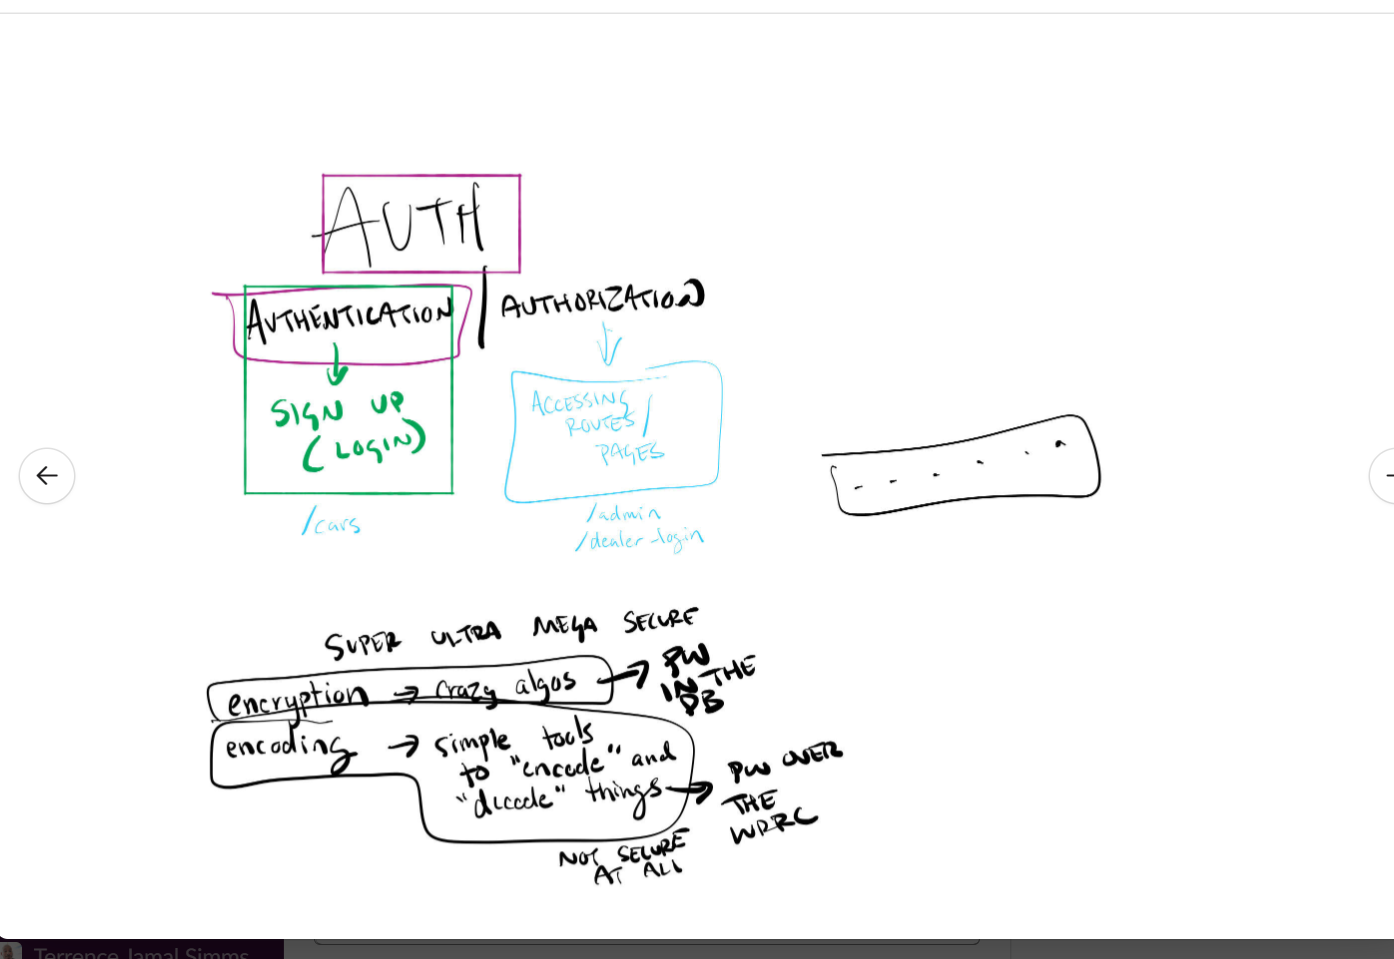 AUTH
AUTHENTICATION
AUTHORIZATION
SIGN UP
(LOGIN)
/cars
ACCESSING
ROUTES/
PAGES
/admin
/dealer-login
SUPER ULTRA MEGA SECURE
encryption → crazy algos → PW
IN THE
DB
encoding → simple tools
to "encode" and
"decode" things → PW OVER
THE
NOT SECURE
AT ALL
Terrence Jamal Simms